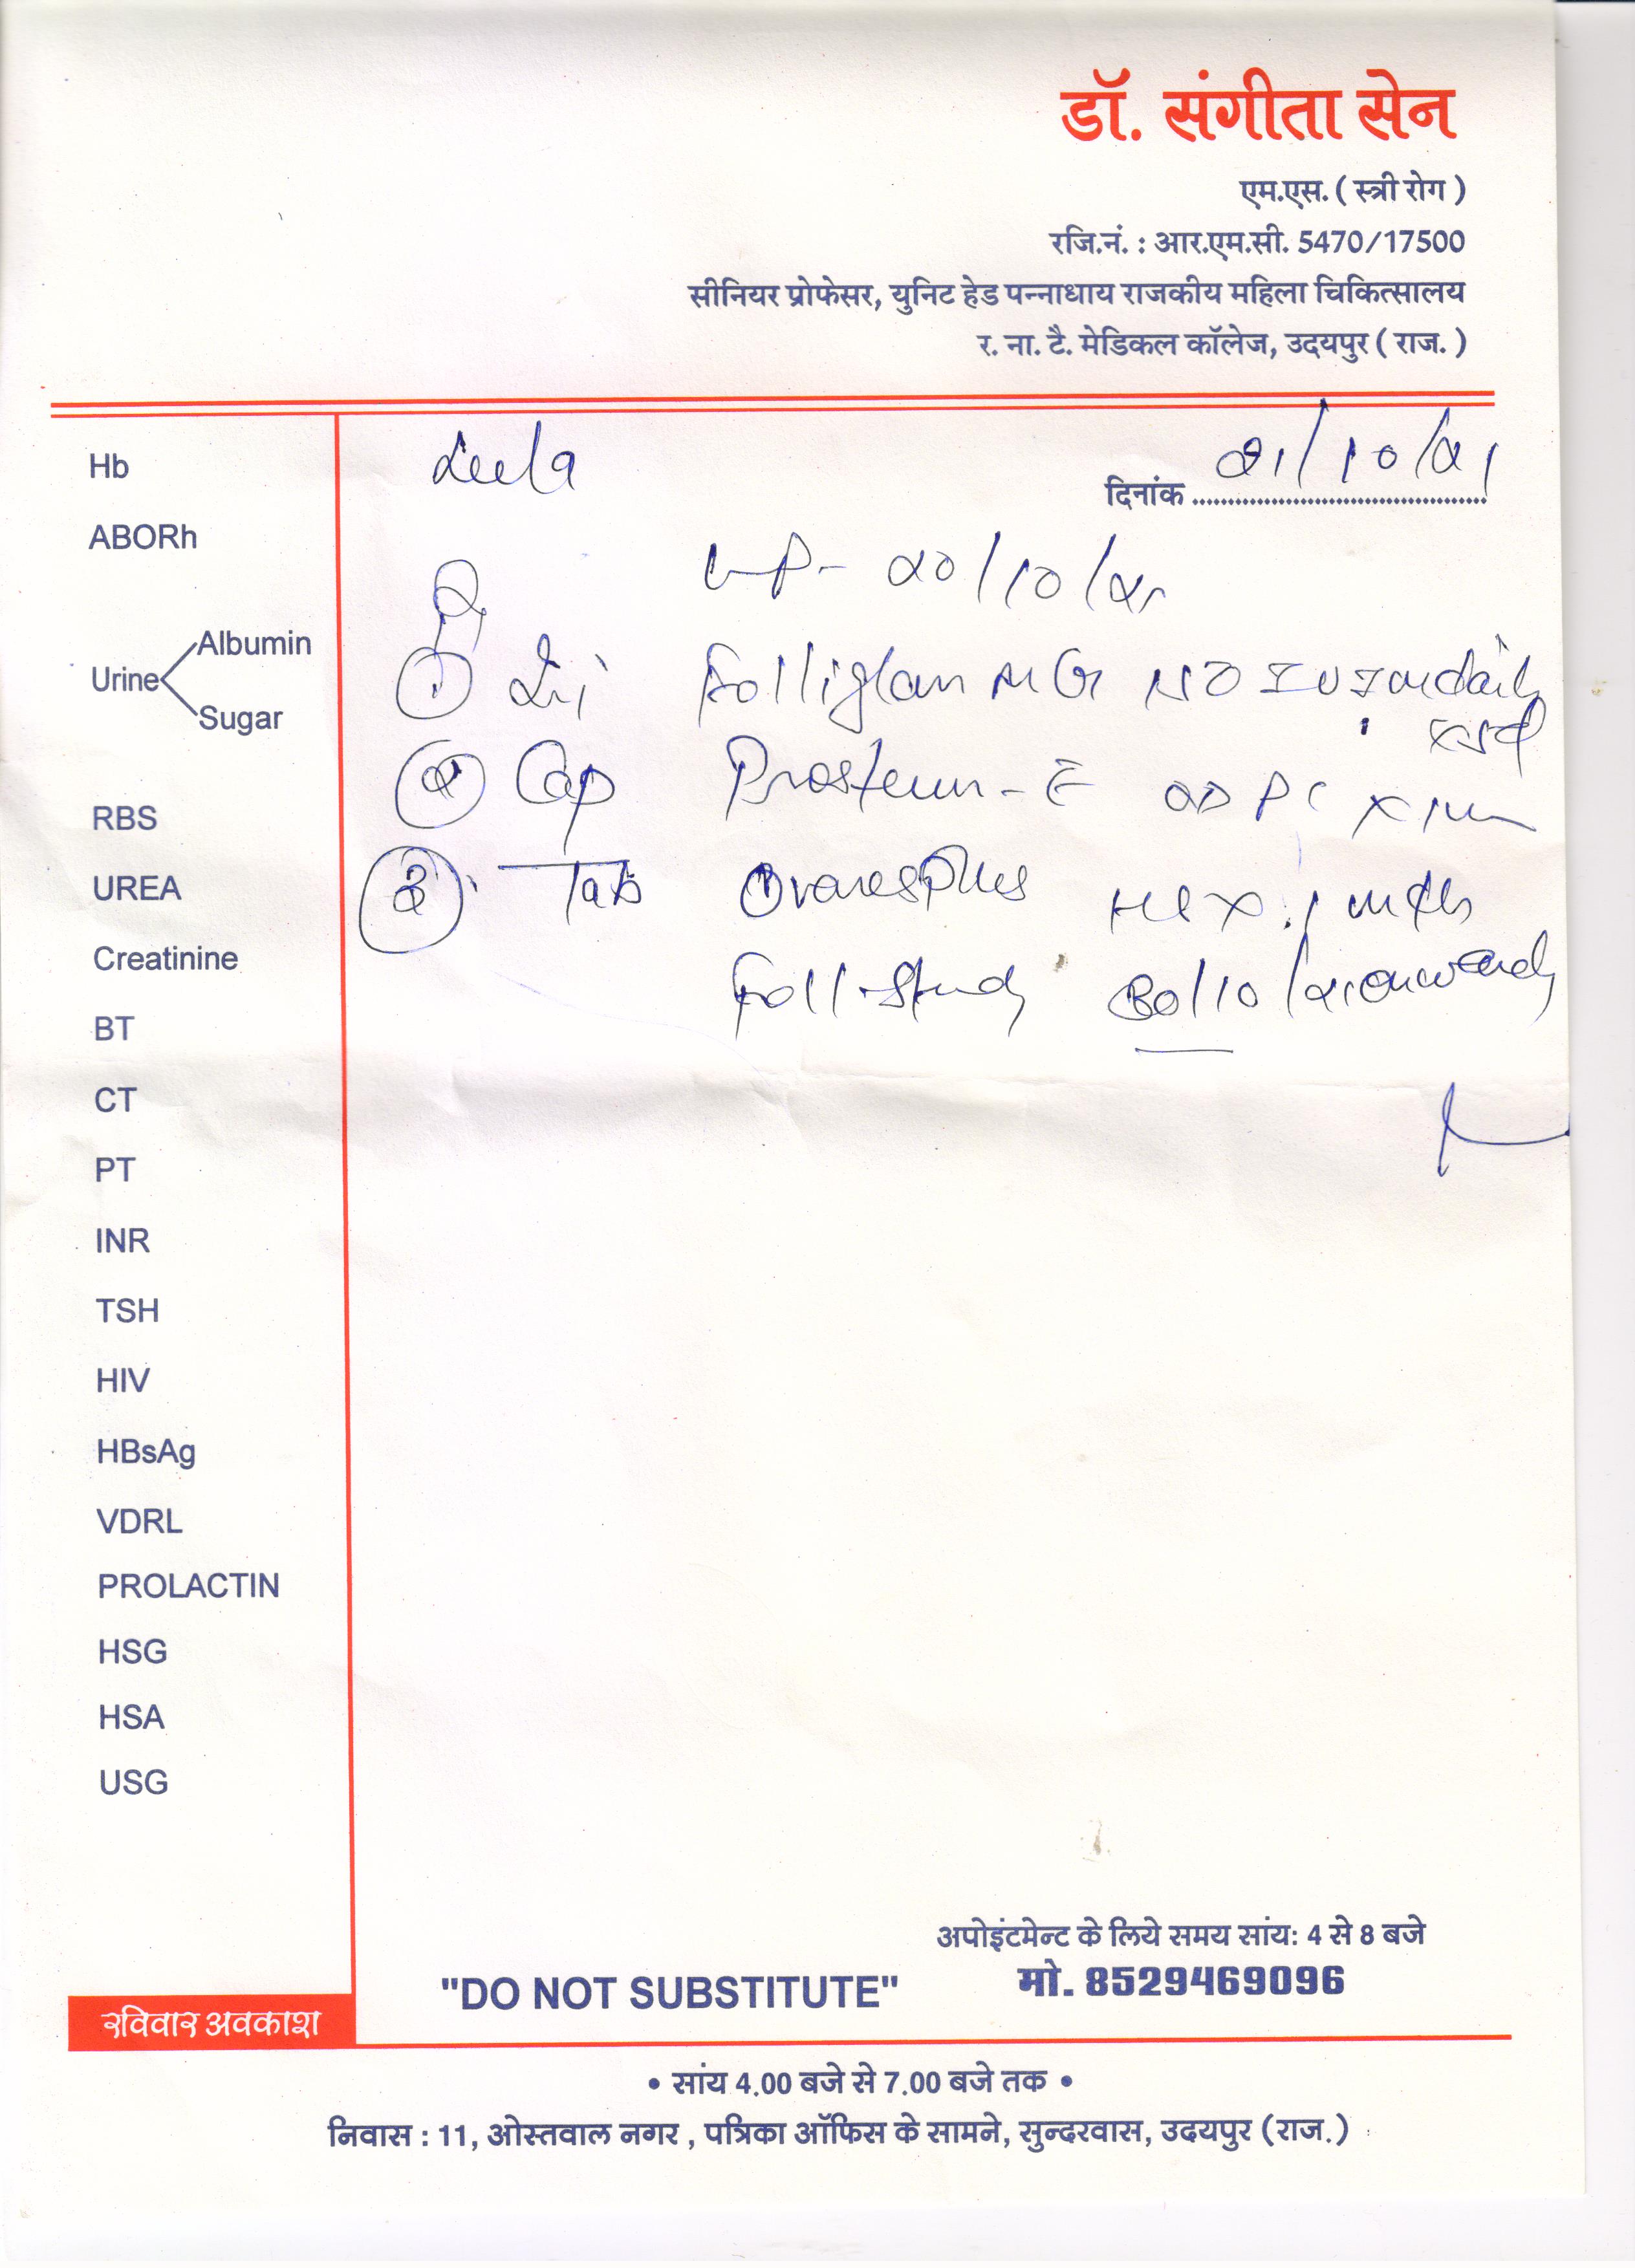 डॉ. संगीता सेन
एम.एस. ( स्त्री रोग )
रजि.नं. : आर.एम.सी. 5470/17500
सीनियर प्रोफेसर, युनिट हेड पन्नाधाय राजकीय महिला चिकित्सालय
र. ना. टै. मेडिकल कॉलेज, उदयपुर ( राज. )
Leela
दिनांक 21/10/21
LMP- 20/10/21
① Folliglan daily
② Cap
③ Tab Ovares Plus
Foll. Study 30/10/21 onwards
Hb
ABORh
Urine
Albumin
Sugar
RBS
UREA
Creatinine
BT
CT
PT
INR
TSH
HIV
HBsAg
VDRL
PROLACTIN
HSG
HSA
USG
अपोइंटमेन्ट के लिये समय सांय: 4 से 8 बजे
"DO NOT SUBSTITUTE" मो. 8529469096
रविवार अवकाश
• सांय 4.00 बजे से 7.00 बजे तक •
निवास : 11, ओस्तवाल नगर , पत्रिका ऑफिस के सामने, सुन्दरवास, उदयपुर (राज.)